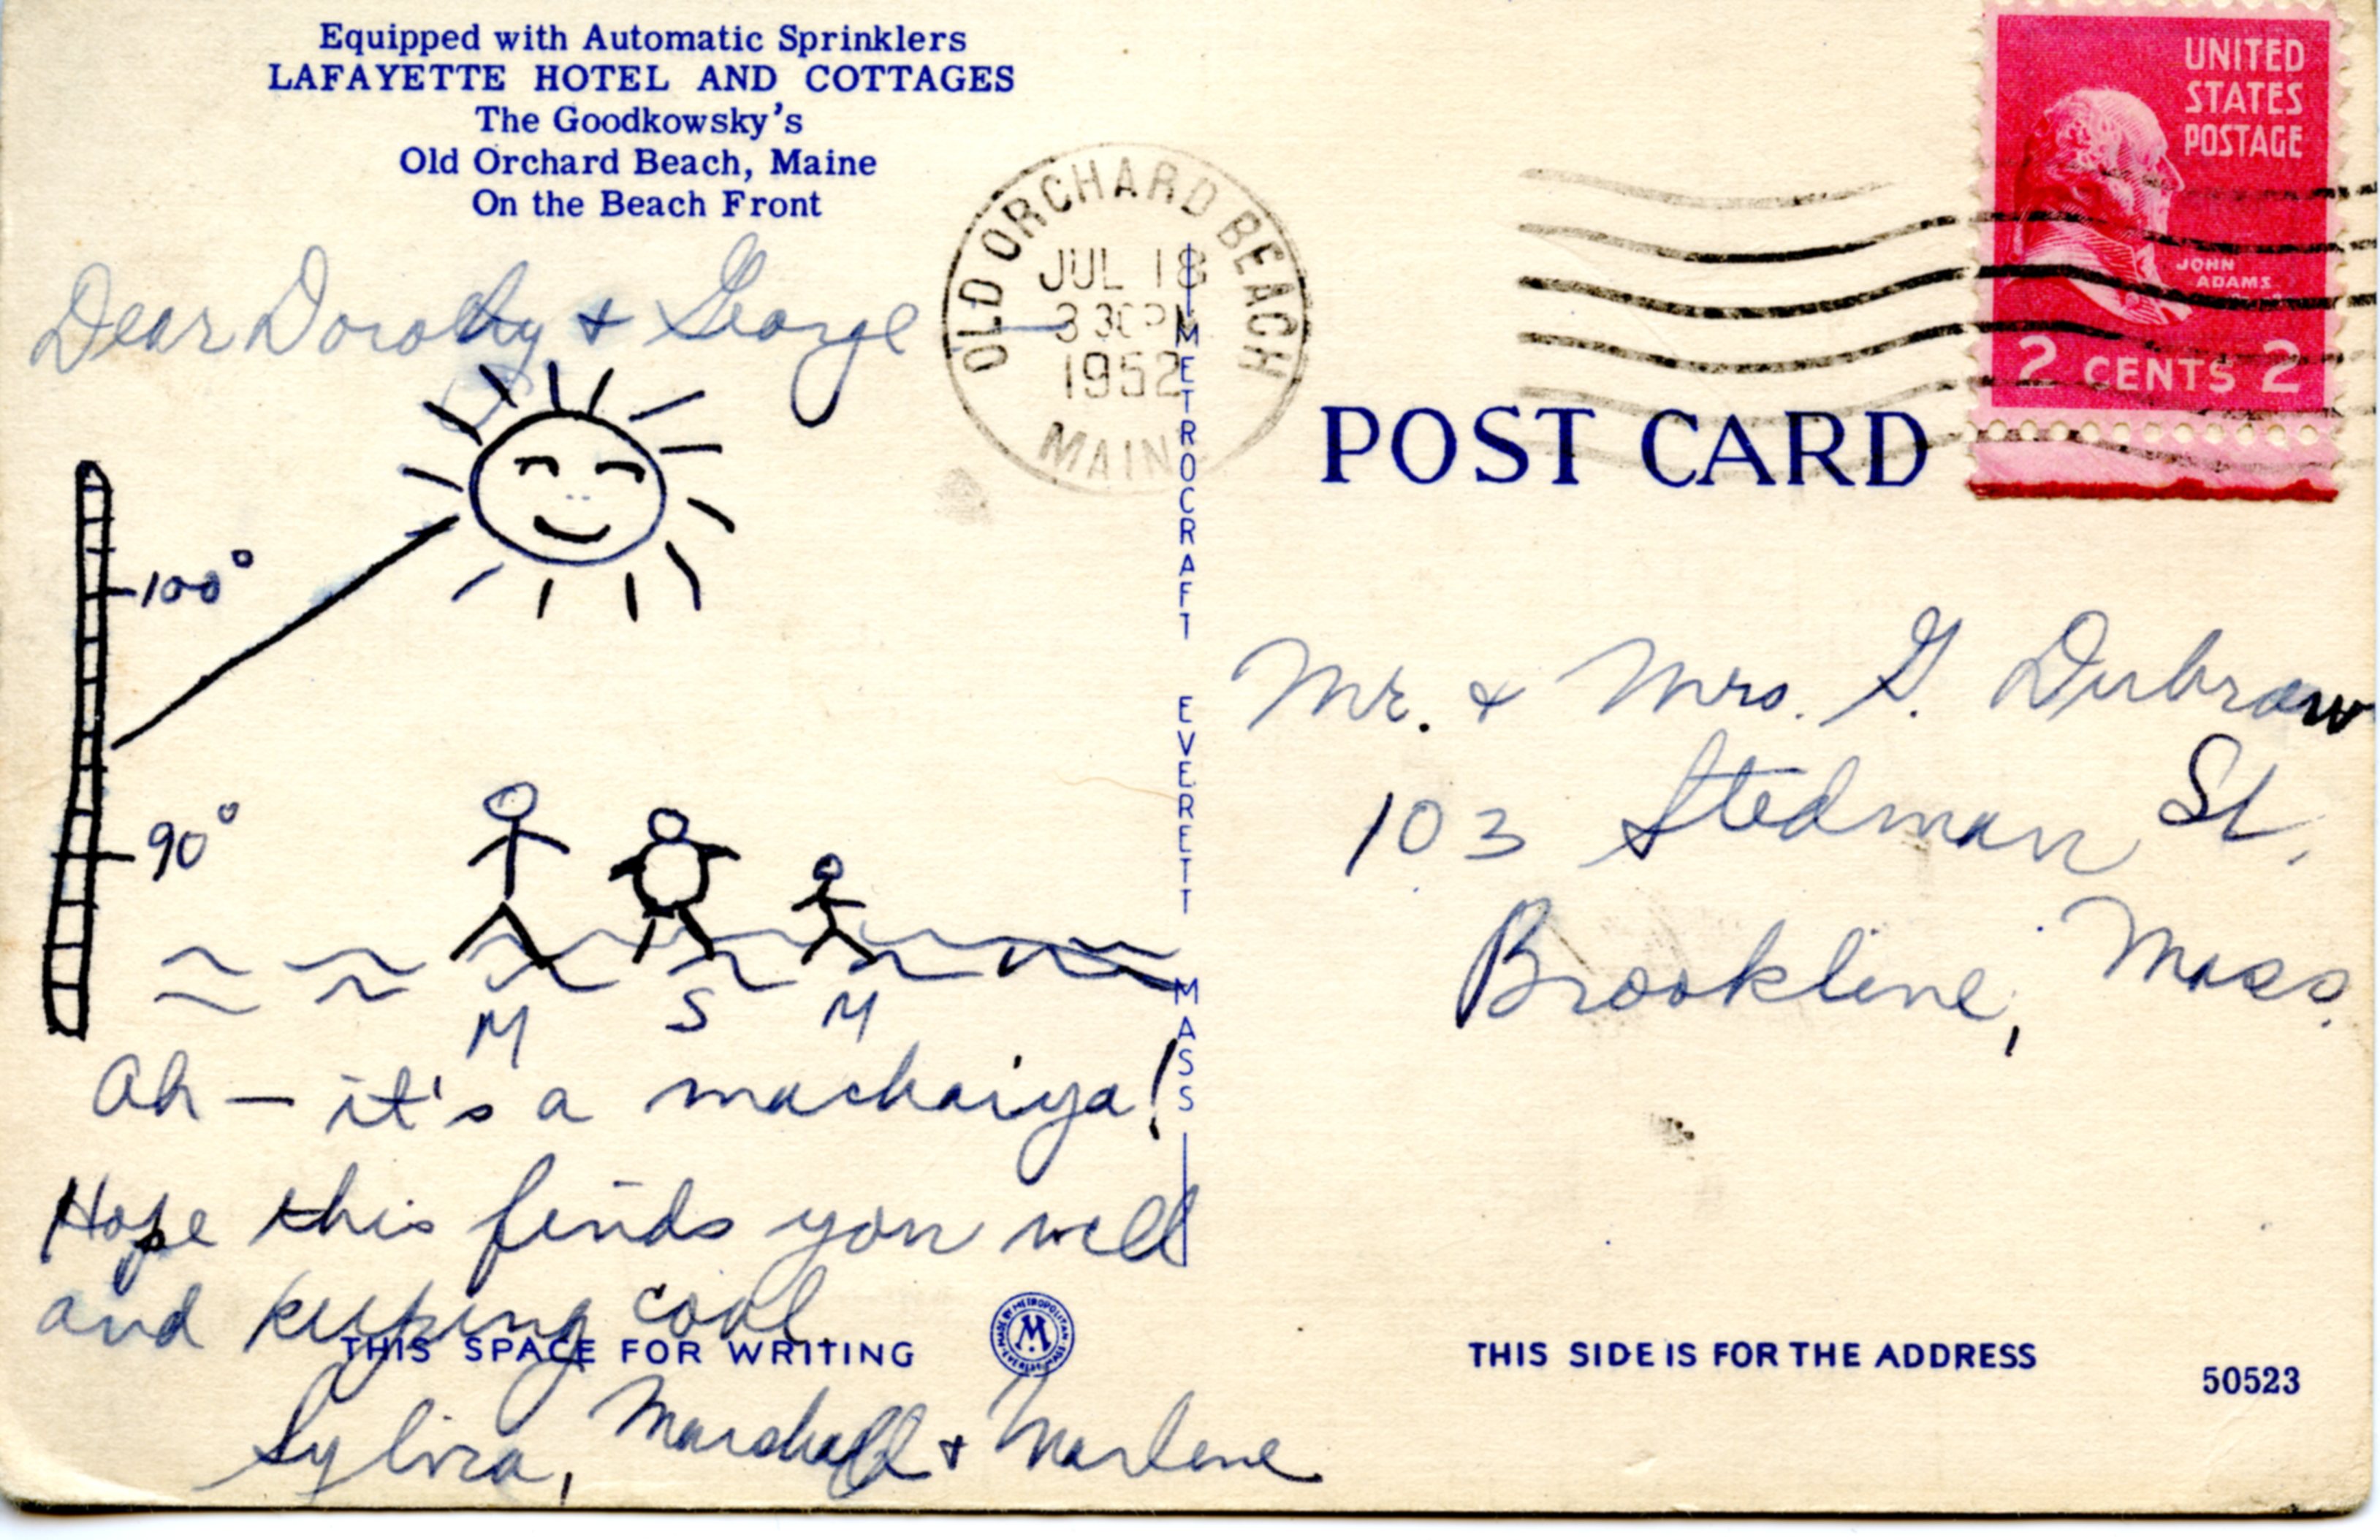 Equipped with Automatic Sprinklers
LAFAYETTE HOTEL AND COTTAGES
The Goodkowsky's
Old Orchard Beach, Maine
On the Beach Front
Dear Dorothy & George —
100°
90°
M S M
Ah — it's a machaiya!
Hope this finds you well
and keeping cool
THIS SPACE FOR WRITING
Sylvia, Marshall & Marlene
OLD ORCHARD BEACH
JUL 18
3 30 PM
1952
MAINE
METROCRAFT EVERETT MASS
M
UNITED
STATES
POSTAGE
JOHN
ADAMS
2 CENTS 2
POST CARD
Mr. & Mrs. G. Dubraw
103 Stedman St.
Brookline, Mass.
THIS SIDE IS FOR THE ADDRESS
50523